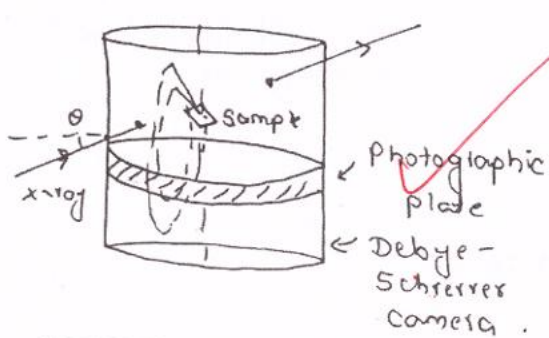 θ
Sample
x-ray
Photographic
Plate
Debye-
Scherrer
Camera.